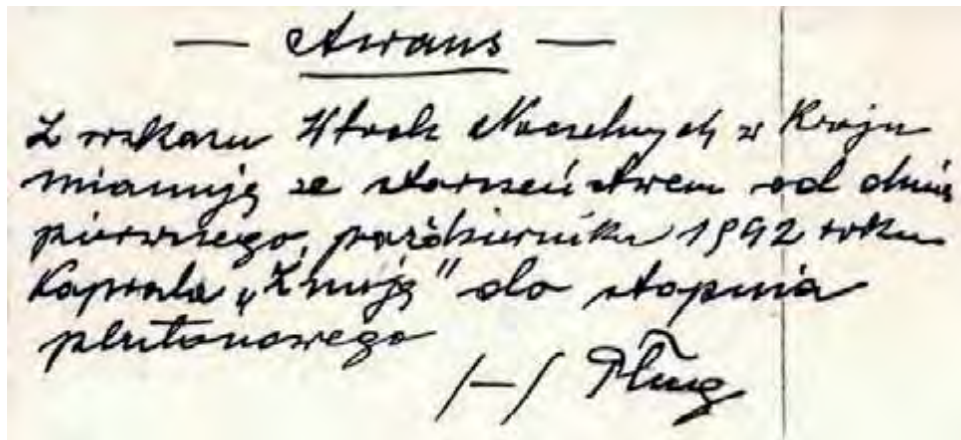 — Awans —
Z rozkazu Władz Naczelnych w Kraju
mianuję ze starszeństwem od dnia
pierwszego, października 1942 roku
Kaprala „Żmiję" do stopnia
plutonowego
/—/ Pług